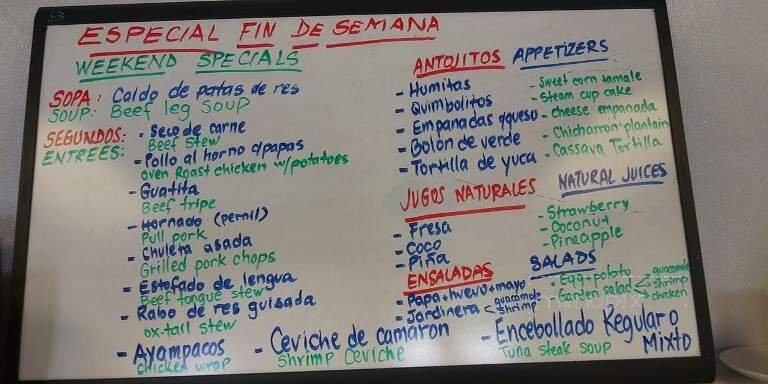 ESPECIAL FIN DE SEMANA
WEEKEND SPECIALS
SOPA: Caldo de patas de res
SOUP: Beef leg soup
SEGUNDOS: - Seco de carne
ENTREES: Beef stew
- Pollo al horno c/papas
oven Roast chicken w/potatoes
- Guatita
Beef tripe
- Hornado (pernil)
Pull pork
- Chuleta asada
Grilled pork chops
- Estofado de lengua
Beef tongue stew
- Rabo de res guisada
ox-tail stew
- Ayampacos
chicken wrap
- Ceviche de camaron
shrimp ceviche
- Encebollado Regular o
Mixto
Tuna steak soup
ANTOJITOS APPETIZERS
- Humitas - Sweet corn tamale
- Quimbolitos - Steam cup cake
- Empanadas q/queso - cheese empanada
- Bolon de verde - Chicharron-plantain
- Tortilla de yuca - Cassava Tortilla
JUGOS NATURALES NATURAL JUICES
- Fresa - Strawberry
- Coco - Coconut
- Piña - Pineapple
ENSALADAS SALADS
- Papa+huevo+mayo - Egg+potato
- Jardinera < guacamole shrimp - Garden salad < guacamole shrimp chicken